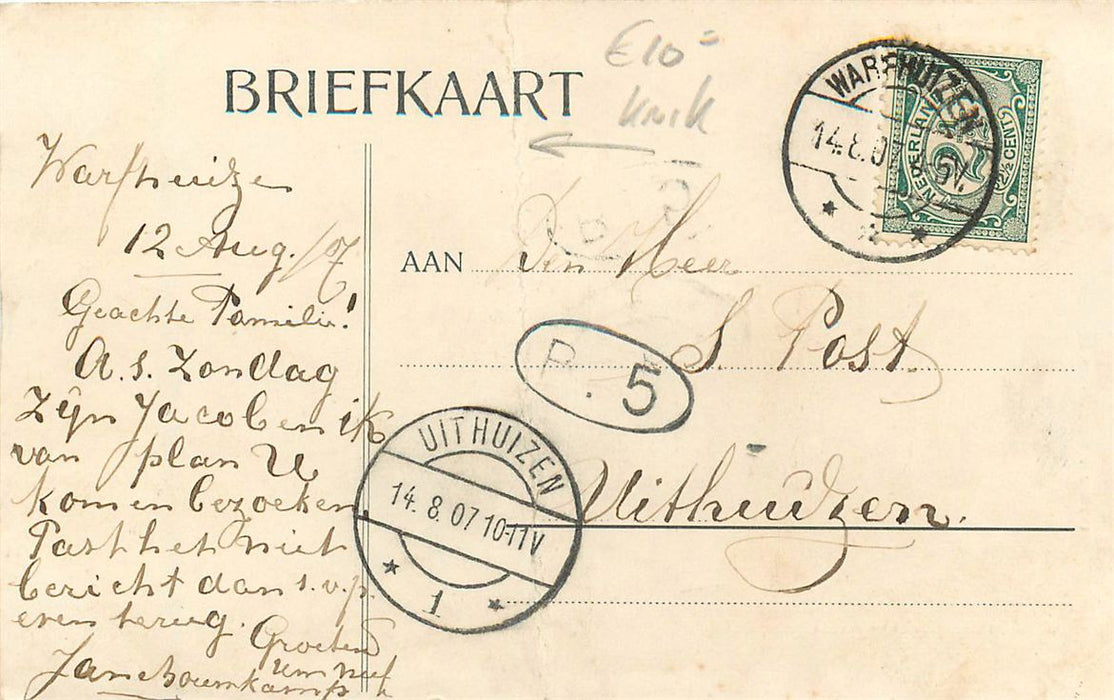 BRIEFKAART
€10=
knik
WARFHUIZEN
14.8.07
NEDERLAND
2½ CENT
Warfhuize
12 Aug. /07
Geachte Familie!
A.s. Zondag
zijn Jacob en ik
van plan U
komen bezoeken
Past het niet
bericht dan s.v.p.
even terug.
Groeten
Uw neef
Jan Boumkamp
AAN Den Heer
S. Post.
P. 5
Uithuizen.
UITHUIZEN
14.8.07 10-11V
1